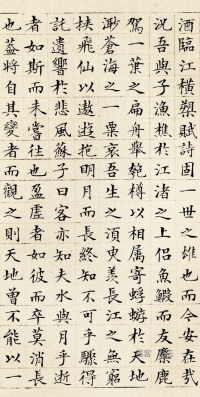 酒臨江橫槊賦詩固一世之雄也而今安在哉
況吾與子漁樵於江渚之上侶魚鰕而友麋鹿
駕一葉之扁舟舉匏樽以相属寄蜉蝣於天地
渺蒼海之一粟哀吾生之須臾羨長江之無窮
挾飛仙以遨遊抱明月而長終知不可乎驟得
託遺響於悲風蘇子曰客亦知夫水與月乎逝
者如斯而未嘗往也盈虛者如彼而卒莫消長
也蓋將自其變者而觀之則天地曾不能以一